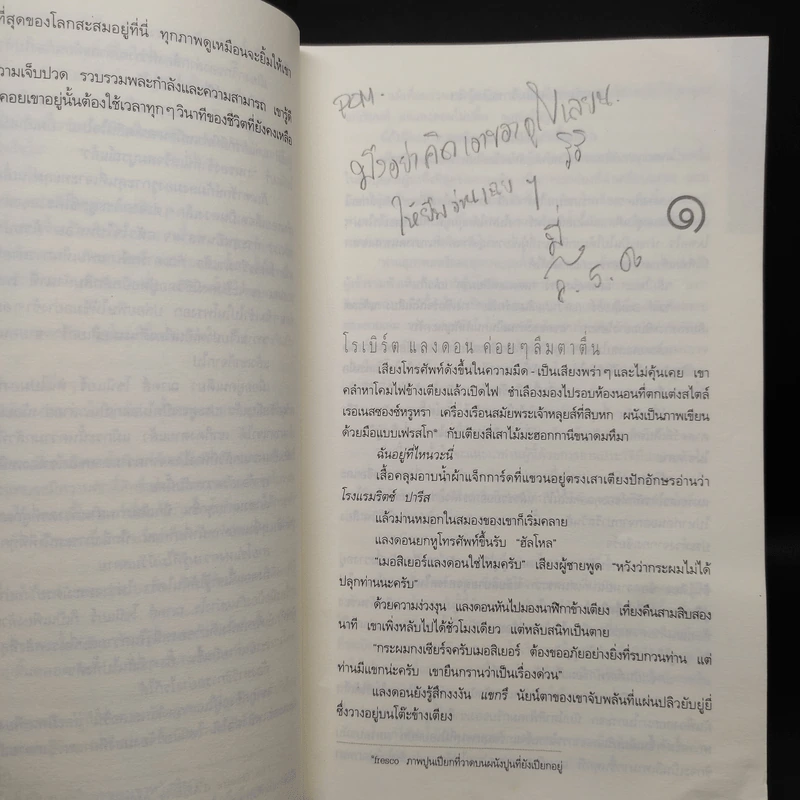 ที่สุดของโลกสะสมอยู่ที่นี่ ทุกภาพดูเหมือนจะยิ้มให้เขา
วามเจ็บปวด รวบรวมพละกำลังและความสามารถ เขารู้ดี
คอยเขาอยู่นั้นต้องใช้เวลาทุกๆวินาทีของชีวิตที่ยังคงเหลือ
มึงอย่าคิดเอาของกูไปเลยน
ให้ยืมอ่านเฉยๆ
๑
โรเบิร์ต แลงดอน ค่อยๆลืมตาตื่น
เสียงโทรศัพท์ดังขึ้นในความมืด - เป็นเสียงพร่าๆและไม่คุ้นเคย เขา
คลำหาโคมไฟข้างเตียงแล้วเปิดไฟ ชำเลืองมองไปรอบห้องนอนที่ตกแต่งสไตล์
เรอเนสซองซ์หรูหรา เครื่องเรือนสมัยพระเจ้าหลุยส์ที่สิบหก ผนังเป็นภาพเขียน
ด้วยมือแบบเฟรสโก* กับเตียงสี่เสาไม้มะฮอกกานีขนาดมหึมา
ฉันอยู่ที่ไหนวะนี่
เสื้อคลุมอาบน้ำผ้าแจ็กการ์ดที่แขวนอยู่ตรงเสาเตียงปักอักษรอ่านว่า
โรงแรมริตซ์ ปารีส
แล้วม่านหมอกในสมองของเขาก็เริ่มคลาย
แลงดอนยกหูโทรศัพท์ขึ้นรับ "ฮัลโหล"
"เมอสิเยอร์แลงดอนใช่ไหมครับ" เสียงผู้ชายพูด "หวังว่ากระผมไม่ได้
ปลุกท่านนะครับ"
ด้วยความง่วงงุน แลงดอนหันไปมองนาฬิกาข้างเตียง เที่ยงคืนสามสิบสอง
นาที เขาเพิ่งหลับไปได้ชั่วโมงเดียว แต่หลับสนิทเป็นตาย
"กระผมกงเซียร์จครับเมอสิเยอร์ ต้องขออภัยอย่างยิ่งที่รบกวนท่าน แต่
ท่านมีแขกน่ะครับ เขายืนกรานว่าเป็นเรื่องด่วน"
แลงดอนยังรู้สึกงงงัน แขกรึ นัยน์ตาของเขาจับพลันที่แผ่นปลิวยับยู่ยี่
ซึ่งวางอยู่บนโต๊ะข้างเตียง
*fresco ภาพปูนเปียกที่วาดบนผนังปูนที่ยังเปียกอยู่